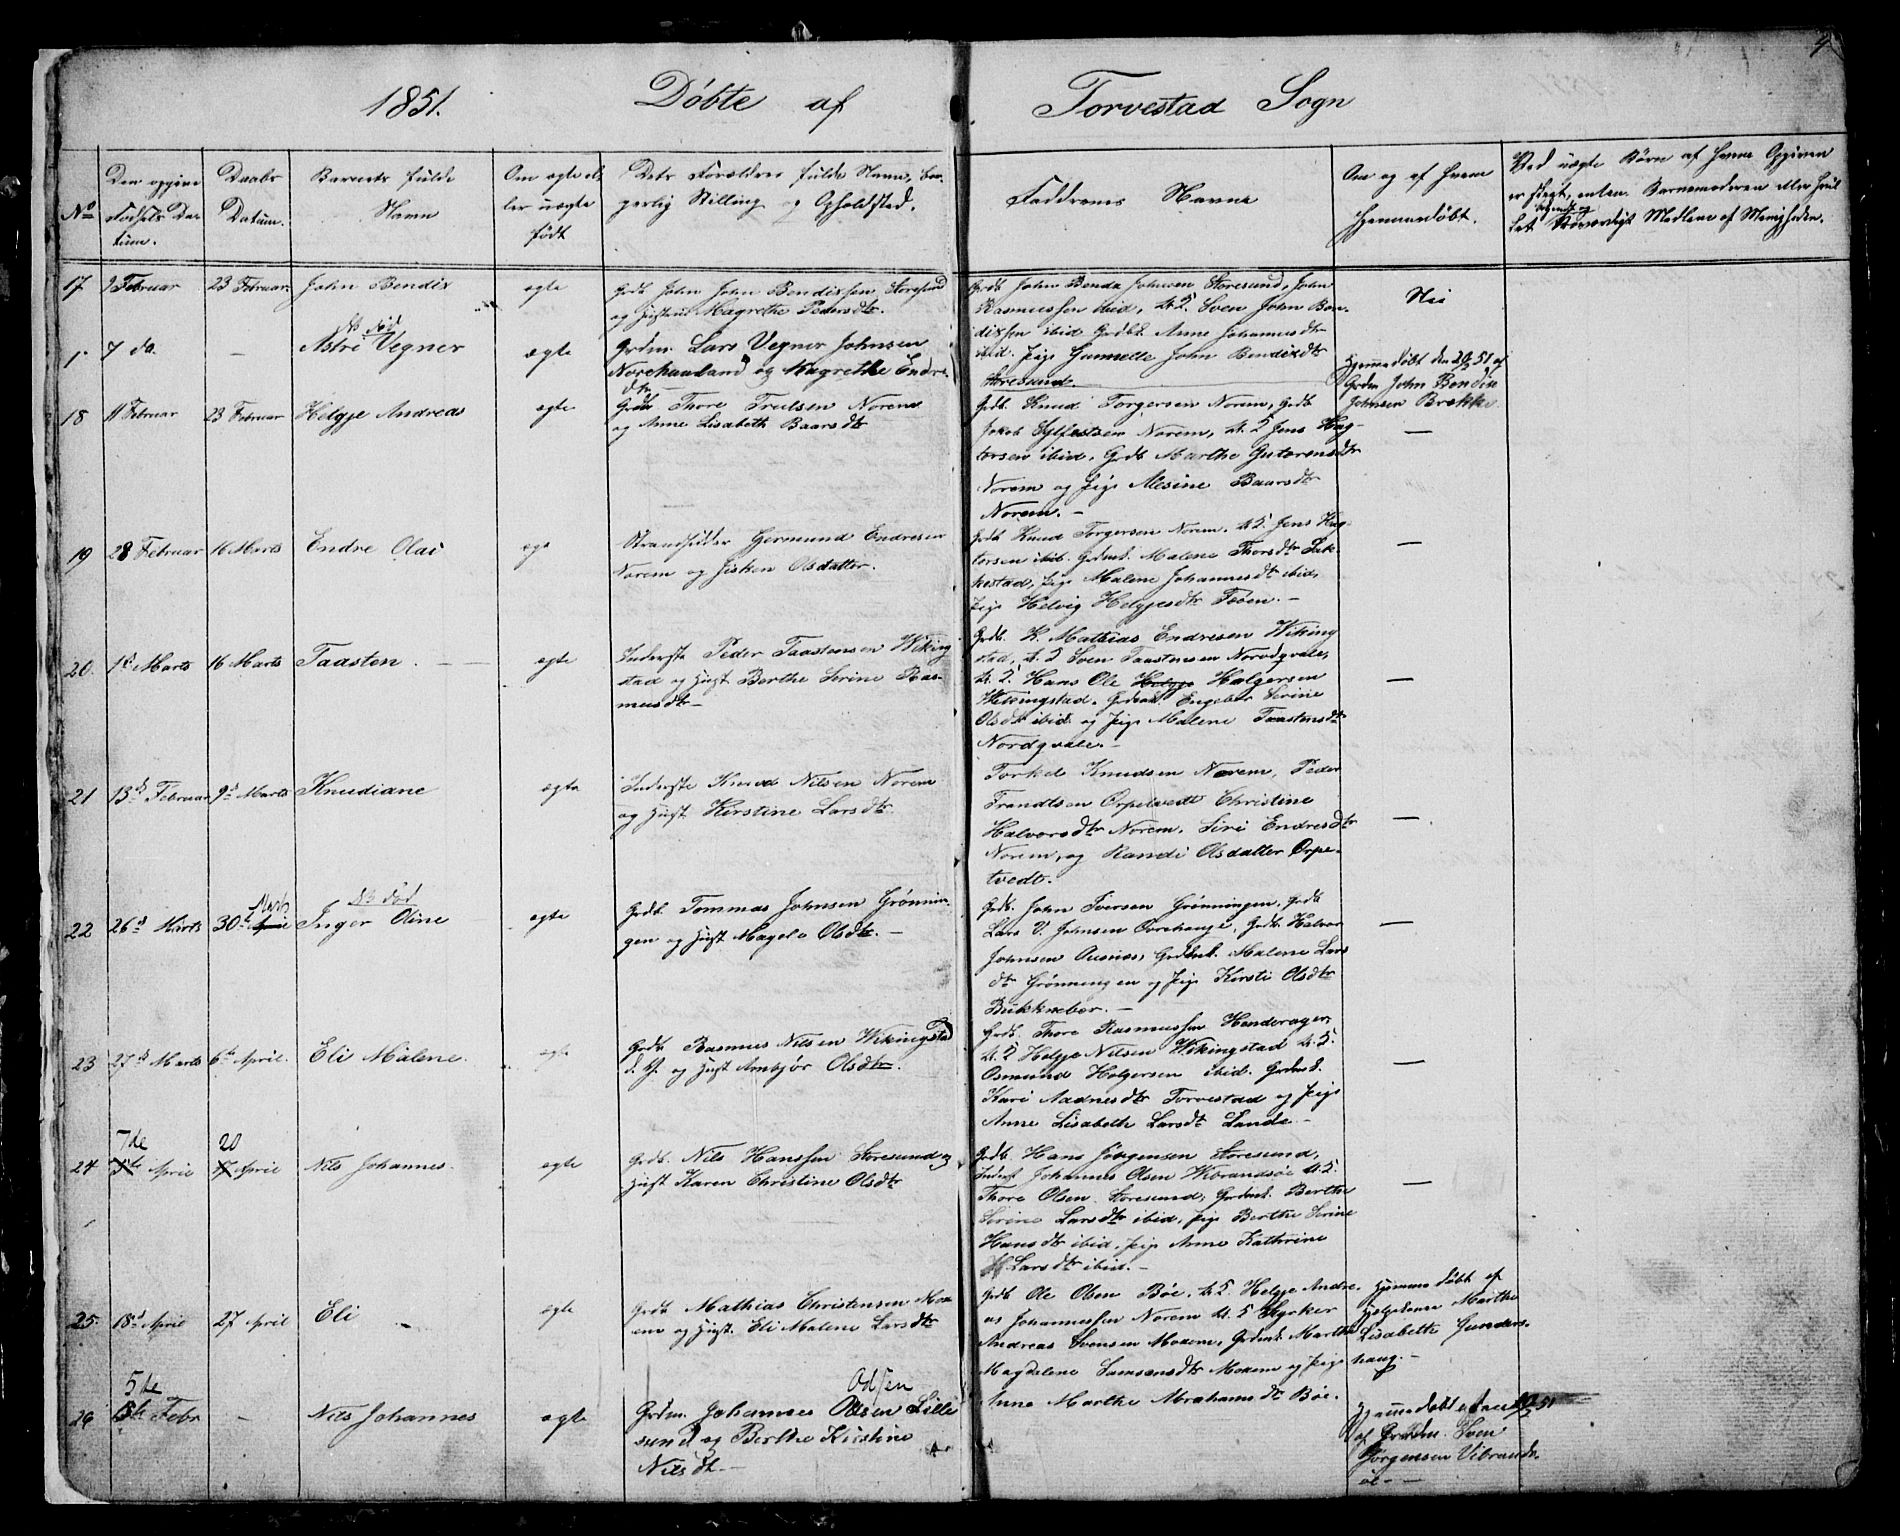 4
1851. Døbte af Torvestad Sogn
No
Den opgivne
Fødsels Da-
tum.
Daabs
Datum.
Barnets fulde
Navn
Om ægte el-
ler uægte
født
Dets Forældres fulde Navn, bor-
gerlig Stilling og Opholdsted.
Faddrenes Navne
Om og af hvem
hjemmedøbt.
Ved uægte Børn af hvem Opgiven
er skeet, enten Barnemoderen eller
Medlem af Menigheden.
17 9 Februar 23 Februar John Bendix ægte
Grdb. John John Bendixsen Storesund
og Hustru Magrethe Pedersdtr.
Grdb. John Benda Johnsen Storesund, John
Rasmussen ibid, U.K. Sven John Ben-
dixsen ibid Grdbk. Anne Johannesdtr
ibid. Pige Gunnelle John Bendixdtr
Storesund.
Nei
død
1. 7 do. — Astri Vegner ægte
Grdm. Lars Vegner Johnsen
Norehaaland og Magrethe Endre
dtr.
Hjemmedøbt den 20/2 51 af
Grdm John Bendix
Johnsen Brekke
18 11 Februar 23 Februar Helgje Andreas ægte
Grdb. Thore Trulsen Norem
og Anne Lisabeth Baarsdtr
Grdb. Knud Torgersen Norem, Grdb
Jakob Sylfestsen Norem, U.K. Jens Hag-
torsen ibid, Grdb. Marthe Gutormsdtr
Norem og Pige Alesine Baarsdtr
Norem. —
—
19 28 Februar 16 Marts Endre Olai ægte
Strandsidder Germund Endresen
Norem og Sisken Olsdatter.
Grdb. Knud Torgersen Norem. U.K. Jens Hag-
torsen ibid. Grdmk. Malene Thorsdtr Lak-
kestad, Pige Malene Johannesdtr ibid,
Pige Helvig Helgjesdtr Føen. —
—
20. 1ste Marts 16 Marts Taasten — —
ægte
Inderste Peder Taastensen Wiking
stad og Hust Berthe Serine Ras-
musdtr —
Grdb. K. Mathias Endresen Wiking
stad, U.K. Sven Taastensen Nordqvale,
U.K. Hans Ole Helgje Holgersen
Wikingstad, Grdmk. Engeber Serine
Olsdtr ibid og Pige Malene Taastensdtr
Nordqvale. —
—
21 13de Februar 9de Marts Knudiane ægte
Inderste Knud Nilsen Norem
og Hust Kirstine Larsdtr.
Torkel Knudsen Norem, Peder
Trandtsen Ørpetvedt Christine
Halvorsdtr Norem. Siri Endresdtr
Norem, og Randi Olsdatter Ørpe-
tvedt.
—
død
Marts
22 26de Marts 30te April Inger Oline ægte
Grdb. Tommas Johnsen Grønnin-
gen og Hust Magele Olsdtr. —
Grdb. John Iversen Grønningen, Grdb
Lars V. Johnsen Ovrehauge, Grdb. Halvor
Johnsen Ausnæs, Grdmk. Malene Lars
dtr Grønningen og Pige Kirsti Olsdtr
Bukkneber. —
—
23 27de Marts 6te April. Eli Malene. ægte
Grdb. Rasmus Nilsen Wikingstad
d. y. og Hust Anbjør Olsdtr.
Grdb. Thore Rasmussen Henderager,
U.K. Helgje Nilsen Wikingstad U.K.
Osmund Holgersen ibid. Grdmk.
Kari Aadnesdtr Torvestad og Pige
Anne Lisabeth Larsdtr Lande —
—
7de 20
24. April April Nils Johannes. ægte
Grdb. Nils Hanssen Storesund og
Hust Karen Christine Olsdtr
Grdb. Hans Jørgensen Storesund,
Inderst Johannes Olsen Wibrandsøe U.K.
Thore Olsen Storesund, Grdmk. Berthe
Serine Larsdtr ibid, Pige Berthe Serine
Hansdtr ibid, Pige Anne Kathrine
Larsdtr ibid. —
—
25. 18de April 27 April Eli ægte
Grdb. Mathias Christensen Mox
em og Hust. Eli Malene Larsdtr
Grdb Ole Olsen Bøe, U.K. Helgje Andre
as Johannessen Norem U.K. Styrker
Andreas Svensen Moxem, Grdmk. Marthe
Magdelene Samsonsdtr Moxem og Pige
Anne Marthe Abrahamsdtr Bøe.
Hjemmedøbt af
Hjelpekone Marthe
Lisabeth Gunders-
haug. —
5te
26 Febr — Nils Johannes ægte
Odsen
Grdm. Johannes Olsen Lille
sund og Berthe Kirstine
Nilsdtr. —
Hjemmedøbt
af Grdm. Sven
Jørgensen Vibrands-
øe. —